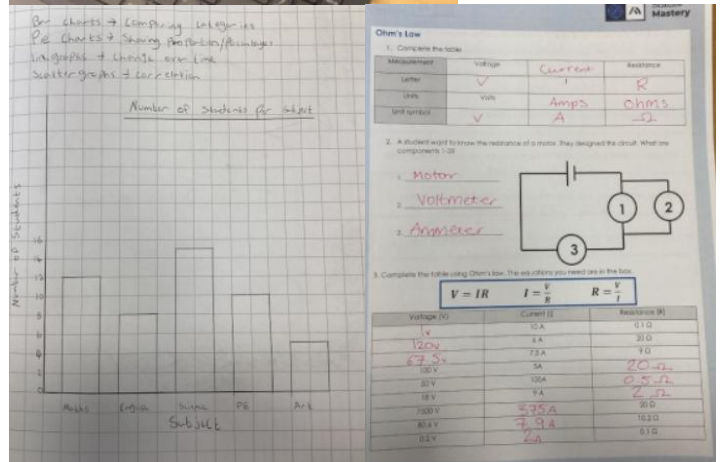 Bar charts → Comparing categories
Pie charts → Showing Proportion/Percentages
Linegraphs → change over time
Scatter graphs → correlation
Number of Students Per subject
Number of Students
16
14
12
10
8
6
4
2
0
Maths English Science PE Art
Subject
Mastery
Ohm's Law
1. Complete the table
Measurement Voltage Current Resistance
Letter V I R
Units Volts Amps Ohms
Unit symbol V A Ω
2. A student want to know the resistance of a motor. They designed the circuit. What are
components 1-3?
1. Motor
2. Voltmeter
3. Ammeter
1
2
3
3. Complete the table using Ohm's law. The equations you need are in the box.
V = IR I = V/R R = V/I
Voltage (V) Current (I) Resistance (R)
1v 10 A 0.1 Ω
120v 6 A 20 Ω
67.5v 7.5 A 9 Ω
100 V 5A 20 Ω
10A 0.5 Ω
18 V 9 A 2 Ω
7500 V 375A 20 Ω
80.6 V 7.9A 10.2 Ω
0.2 V 2A 0.1 Ω